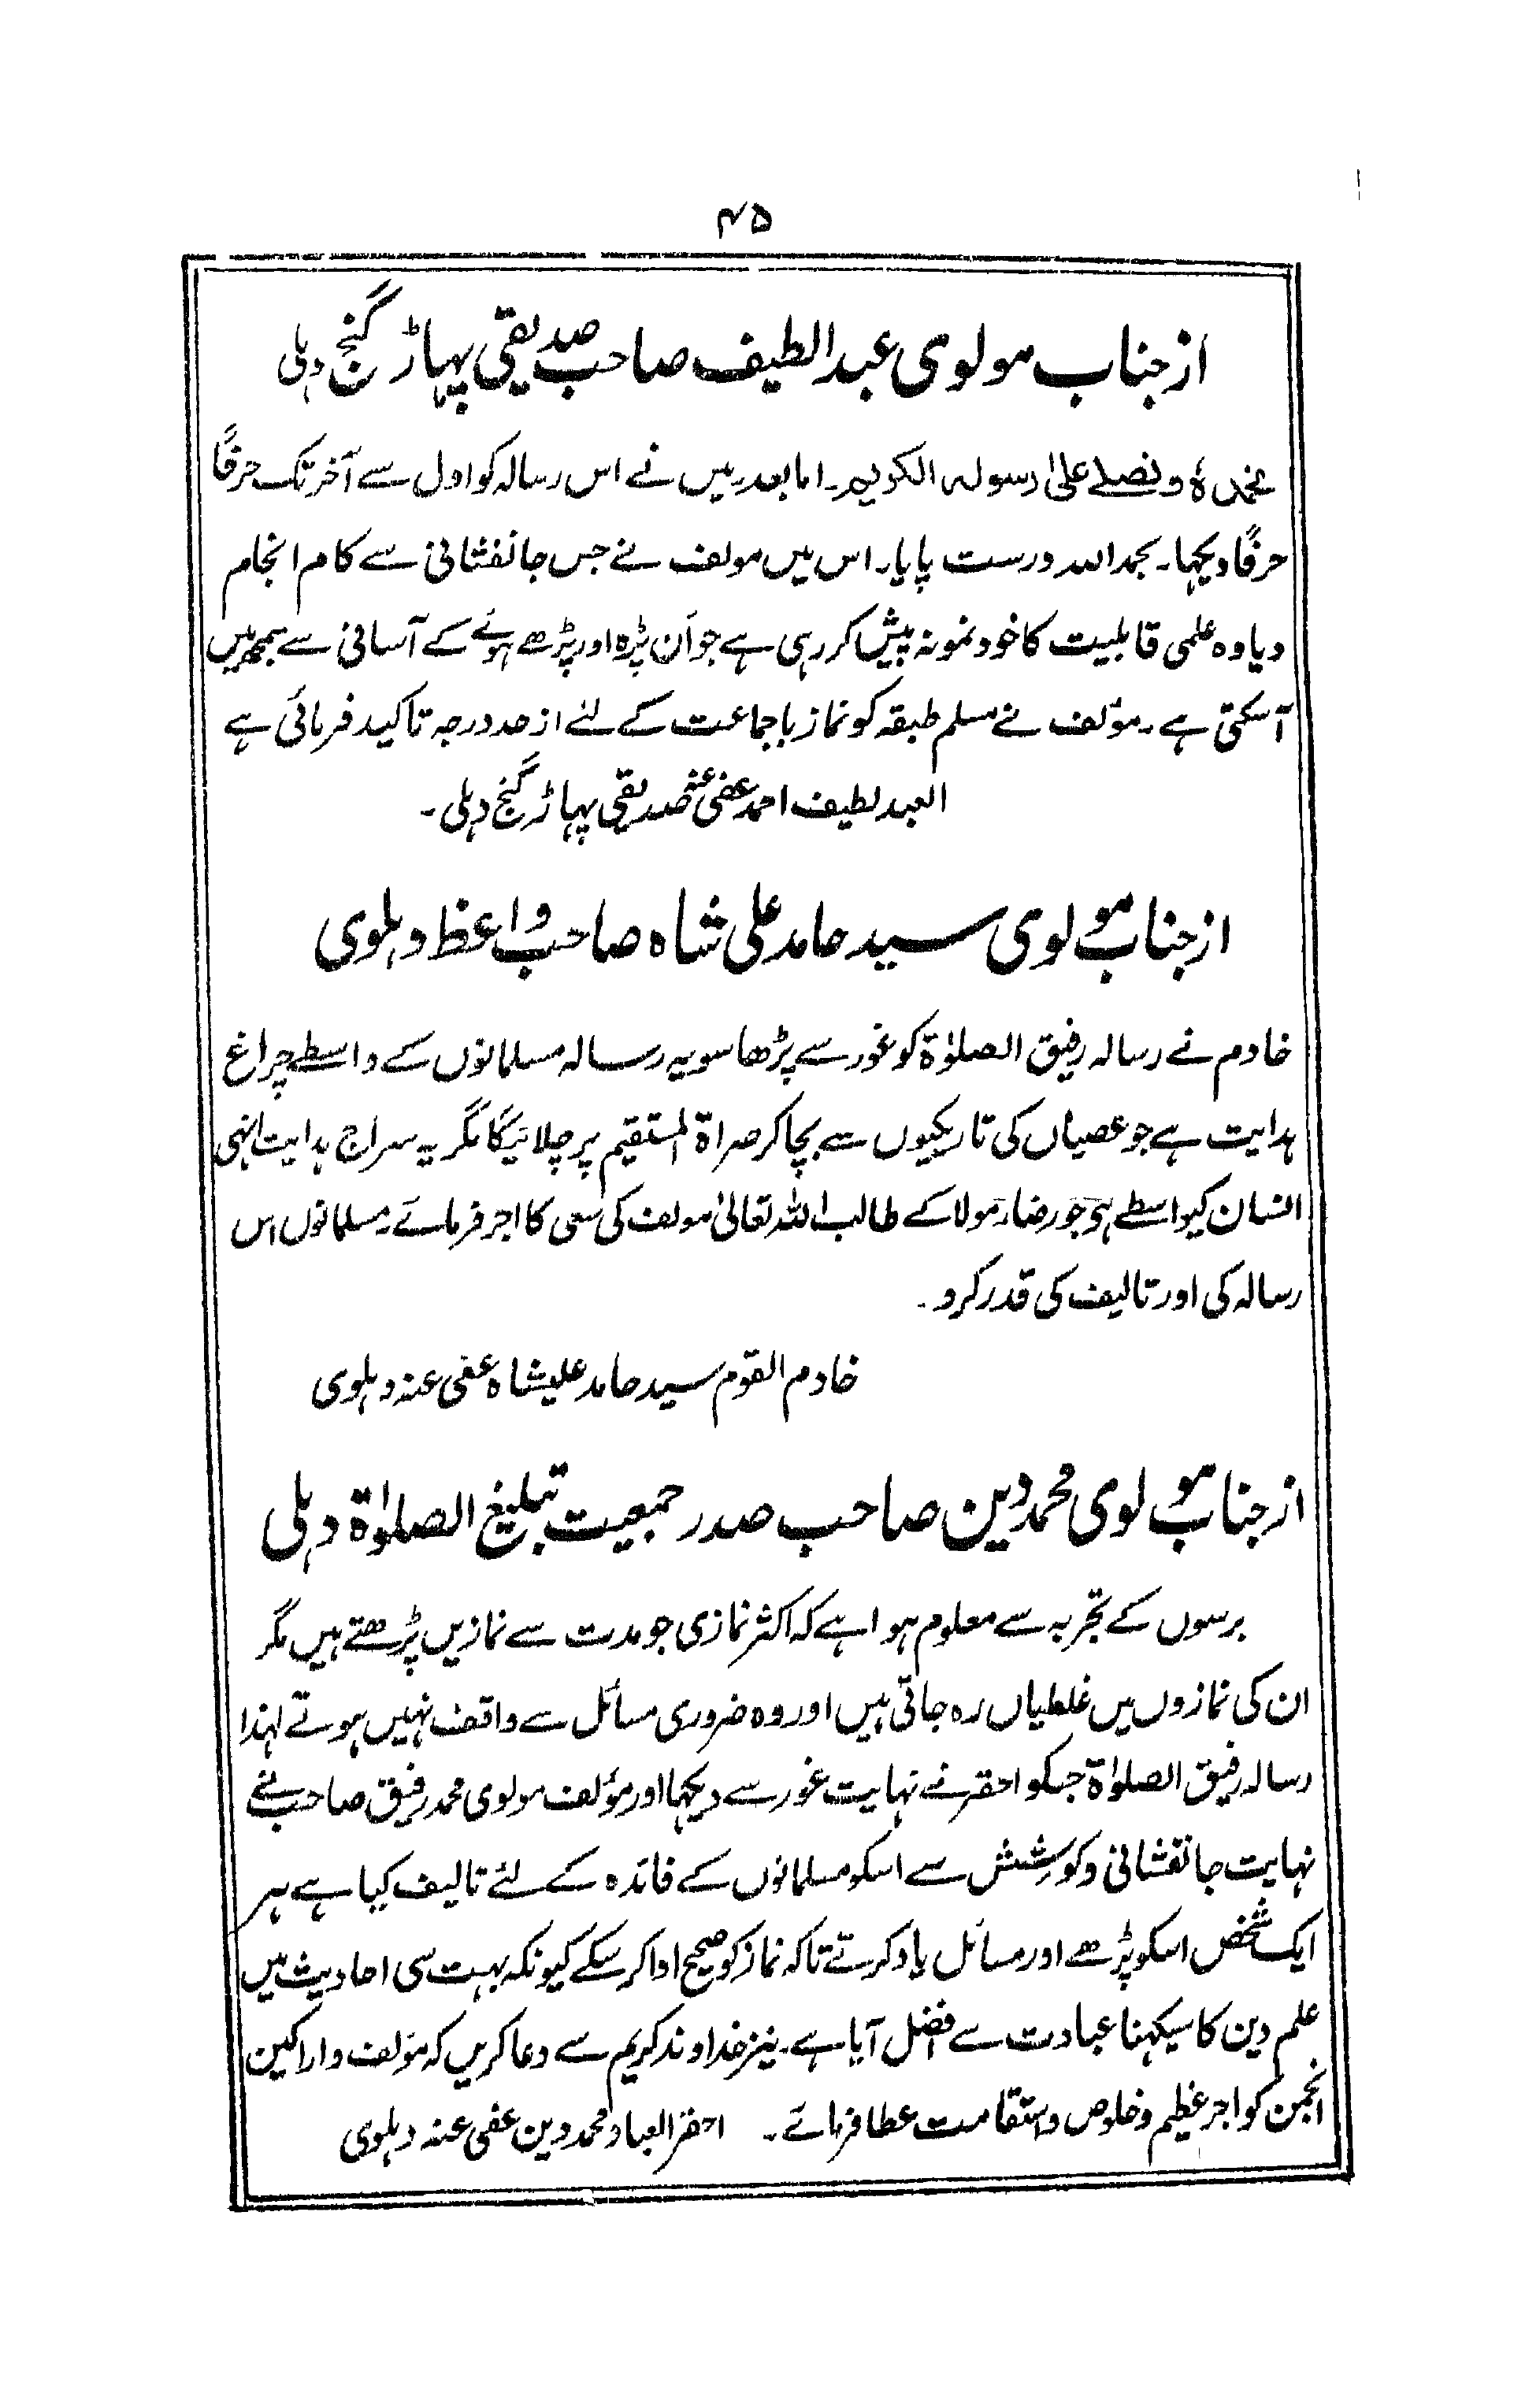 ۴۵
از جناب مولوی عبدالطیف صاحب صدیقی پہاڑ گنج دہلی
نحمدہٗ و نصلے علیٰ رسولہ الکریم۔ اما بعد۔ میں نے اس رسالہ کو اول سے آخر تک حرفاً
حرفاً دیکہا۔ بحمد اللہ درست پایا۔ اس میں مولف نے جس جانفشانی سے کام انجام
دیا وہ علمی قابلیت کا خود نمونہ پیش کر رہی ہے جو اَن پڑہ اور پڑھے ہوئے کے آسانی سے سمجھ میں
آ سکتی ہے۔ مؤلف نے مسلم طبقہ کو نماز باجماعت کے لئے از حد درجہ تاکید فرمائی ہے
العبد لطیف احمد عفی عنہ صدیقی پہاڑ گنج دہلی۔
از جناب مولوی سید حامد علی شاہ صاحب واعظ دہلوی
خادم نے رسالہ رفیق الصلوٰۃ کو غور سے پڑھا سو یہ رسالہ مسلمانوں کے واسطے چراغ
ہدایت ہے جو عصیاں کی تاریکیوں سے بچا کر صراۃ المستقیم پر چلائیگا مگر یہ سراج ہدایت انہی
انسان کیواسطے ہی جو رضاء مولا کے طالب اللہ تعالیٰ مولف کی سعی کا اجر فرمائے۔ مسلمانوں اس
رسالہ کی اور تالیف کی قدر کرو۔
خادم القوم سید حامد علیشاہ عفی عنہ دہلوی
از جناب مولوی محمد دین صاحب صدر جمعیت تبلیغ الصلوٰۃ دہلی
برسوں کے تجربہ سے معلوم ہوا ہے کہ اکثر نمازی جو مدت سے نمازیں پڑھتے ہیں مگر
ان کی نمازوں میں غلطیاں رہ جاتی ہیں اور وہ ضروری مسائل سے واقف نہیں ہوتے لہذا
رسالہ رفیق الصلوٰۃ جسکو احقر نے نہایت غور سے دیکہا اور مؤلف مولوی محمد رفیق صاحب نے
نہایت جانفشانی و کوشش سے اسکو مسلمانوں کے فائدہ کے لئے تالیف کیا ہے ہر
ایک شخص اسکو پڑھے اور مسائل یاد کرے تاکہ نماز کو صحیح ادا کر سکے کیونکہ بہت سی احادیث میں
علم دین کا سیکہنا عبادت سے افضل آیا ہے۔ نیز خداوند کریم سے دعا کریں کہ مؤلف و اراکین
انجمن کو اجر عظیم و خلوص و استقامت عطا فرمائے۔ احقر العباد محمد دین عفی عنہ دہلوی